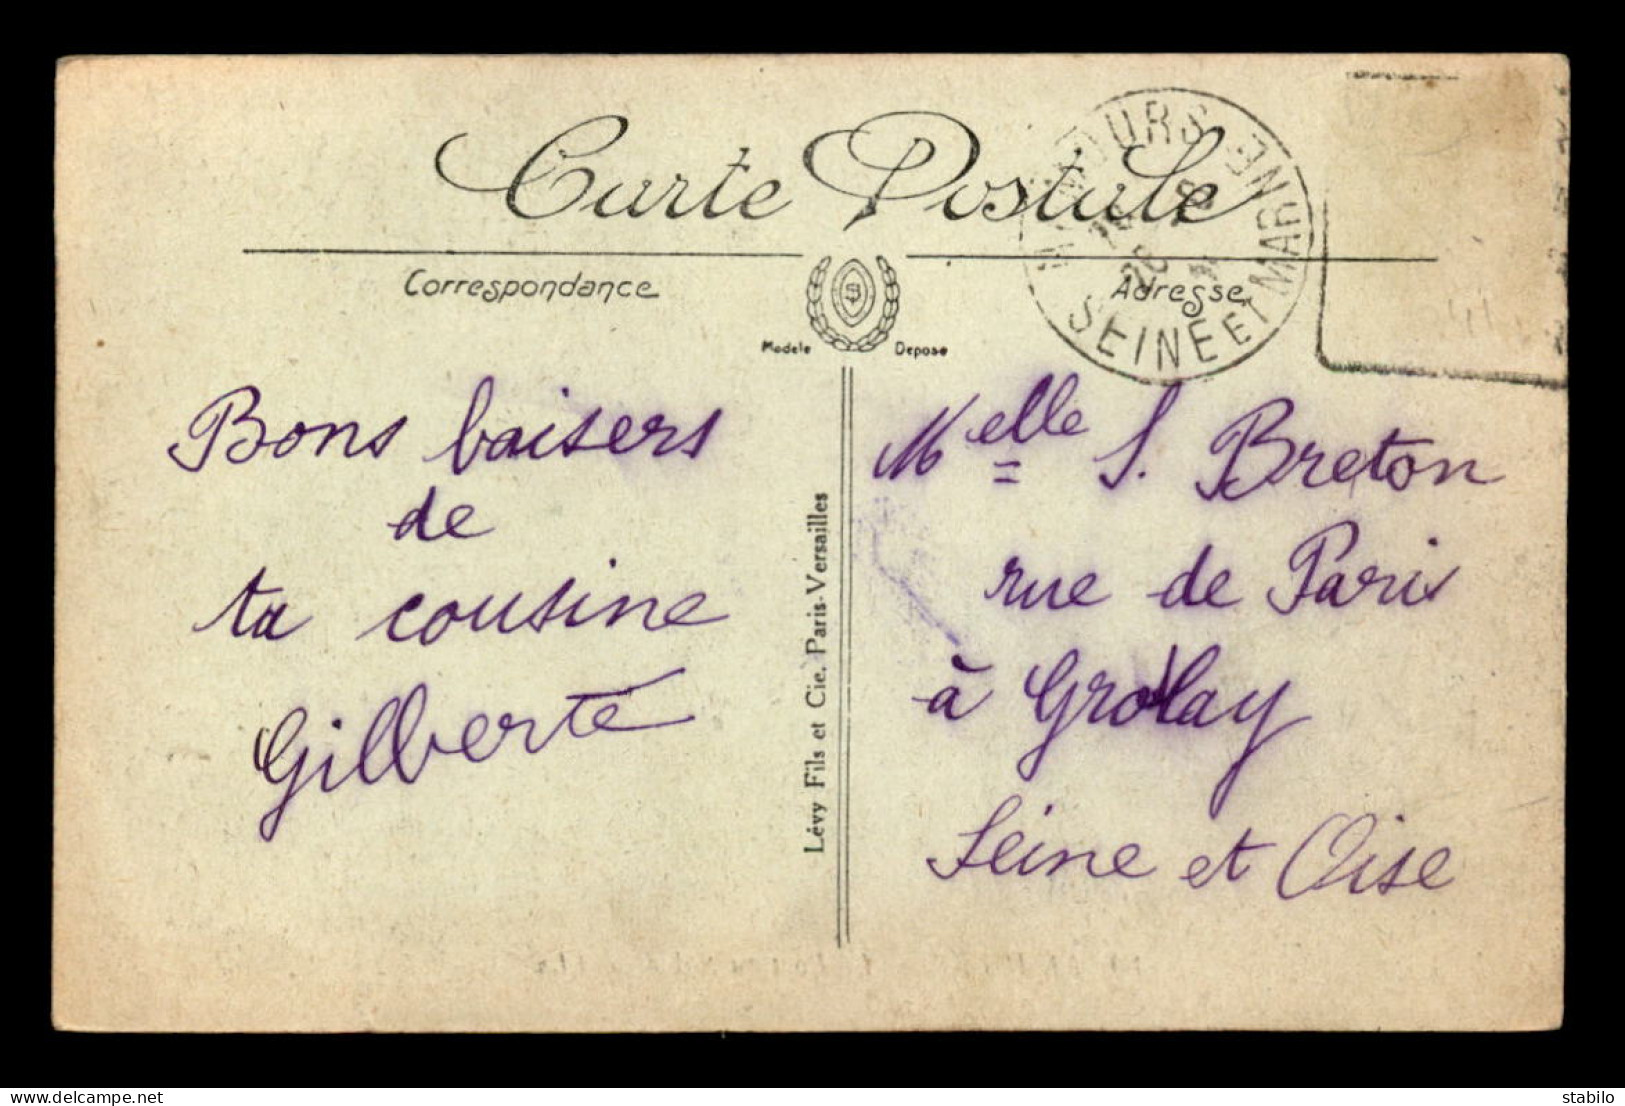 Carte Postale
Correspondance
Adresse
Modèle Déposé
SEINE ET MARNE
Bons baisers
de
ta cousine
Gilberte
Lévy Fils et Cie. Paris-Versailles
Melle S. Breton
rue de Paris
à Grolay
Seine et Oise
delcampe.net
stabilo